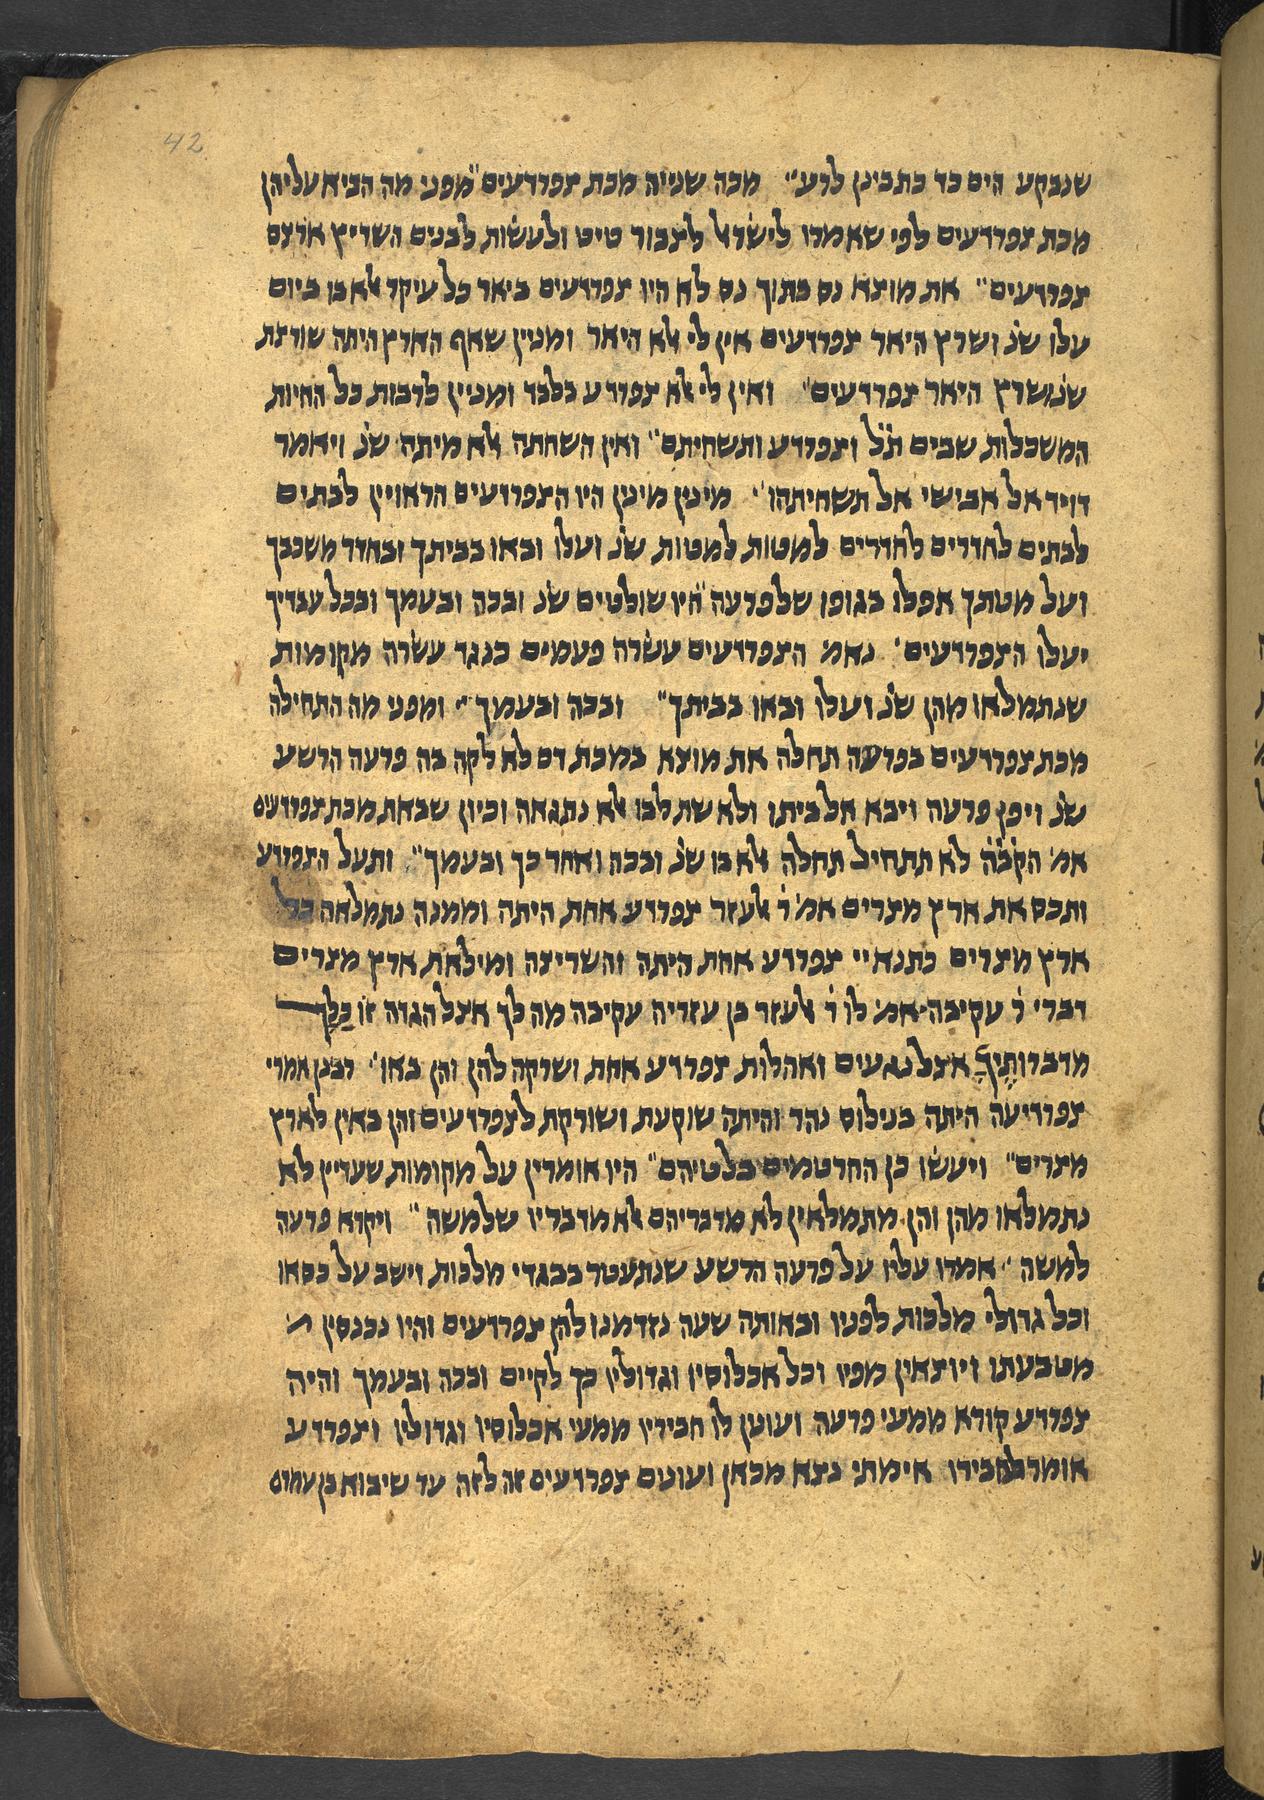 42
שנבקע הים כד כתבינן לרע״ מכה שנייה מכת צפרדעים״ מפני מה הביא עליהן
מכת צפרדעים לפי שאמרו לישראל לצבור טיט ולעשות לבנים השריץ ארצם
צפרדעים״ את מוצא נס בתוך נס לא היו צפרדעים ביאר כל עיקר אלא בו ביום
עלו שנ׳ ושרץ היאר צפרדעים אין לי אלא היאר ומנין שאף הארץ היתה שורצת
שנ׳ ושרץ היאר צפרדעים״ ואין לי אלא צפרדע בלבד ומניין לרבות כל החיות
המשכלות שבים ת״ל וצפרדע ותשחיתם״ ואין השחתה אלא מיתה שנ׳ ויאמר
דויד אל אבישי אל תשחיתהו״ מינין מינין היו הצפרדעים הראויין לבתים
לבתים לחדרים לחדרים למטות למטות שנ׳ ועלו ובאו בביתך ובחדר משכבך
ועל מטתך אפלו בגופו שלפרעה היו שולטים שנ׳ ובכה ובעמך ובכל עבדיך
יעלו הצפרדעים׳ נאמ׳ הצפרדעים עשרה פעמים כנגד עשרה מקומות
שנתמלאו מהן שנ׳ ועלו ובאו בביתך״ ובכה ובעמך״ ומפני מה התחילה
מכת צפרדעים בפרעה תחלה את מוצא במכת דם לא לקה בה פרעה הרשע
שנ׳ ויפן פרעה ויבא אל ביתו ולא שת לבו אלא נתגאה וכיון שבאת מכת צפרדעים
אמ׳ הקבה לא תתחיל תחלה אלא בו שנ׳ ובכה ואחר כך ובעמך״ ותעל הצפרדע
ותכס את ארץ מצרים אמ׳ ר׳ אלעזר צפרדע אחת היתה וממנה נתמלאה כל
ארץ מצרים כתנאיי צפרדע אחת היתה והשריצה ומילאת ארץ מצרים
דברי ר׳ עקיבה אמ׳ לו ר׳ אלעזר בן עזריה עקיבה מה לך אצל הגדה זו כלך
מדברותיך אצל נגעים ואהלות צפרדע אחת ושרקה להן והן באו׳ רבנן אמרי
צפרדיעה היתה בנילוס נהר והיתה שוקעת ושורקת לצפרדעים והן באין לארץ
מצרים״ ויעשו כן החרטמים בלטיהם״ היו אומרין על מקומות שעדיין לא
נתמלאו מהן והן מתמלאין לא מדבריהם אלא מדבריו שלמשה״ ויקרא פרעה
למשה׳ אמרו עליו על פרעה הרשע שנתעטר בבגדי מלכות וישב על כסאו
וכל גדולי מלכות לפניו ובאותה שעה נזדמנו להן צפרדעים והיו נכנסין
מטבעתו ויוצאין מפיו וכל אכלוסיו וגדוליו כך לקיים ובכה ובעמך והיה
צפרדע קורא ממעי פרעה ועונין לו חבירין ממעי אכלוסיו וגדוליו וצפרדע
אומר לחבירו אימתי נצא מכאן ועונים צפרדעים זה לזה עד שיבוא בן עמרם